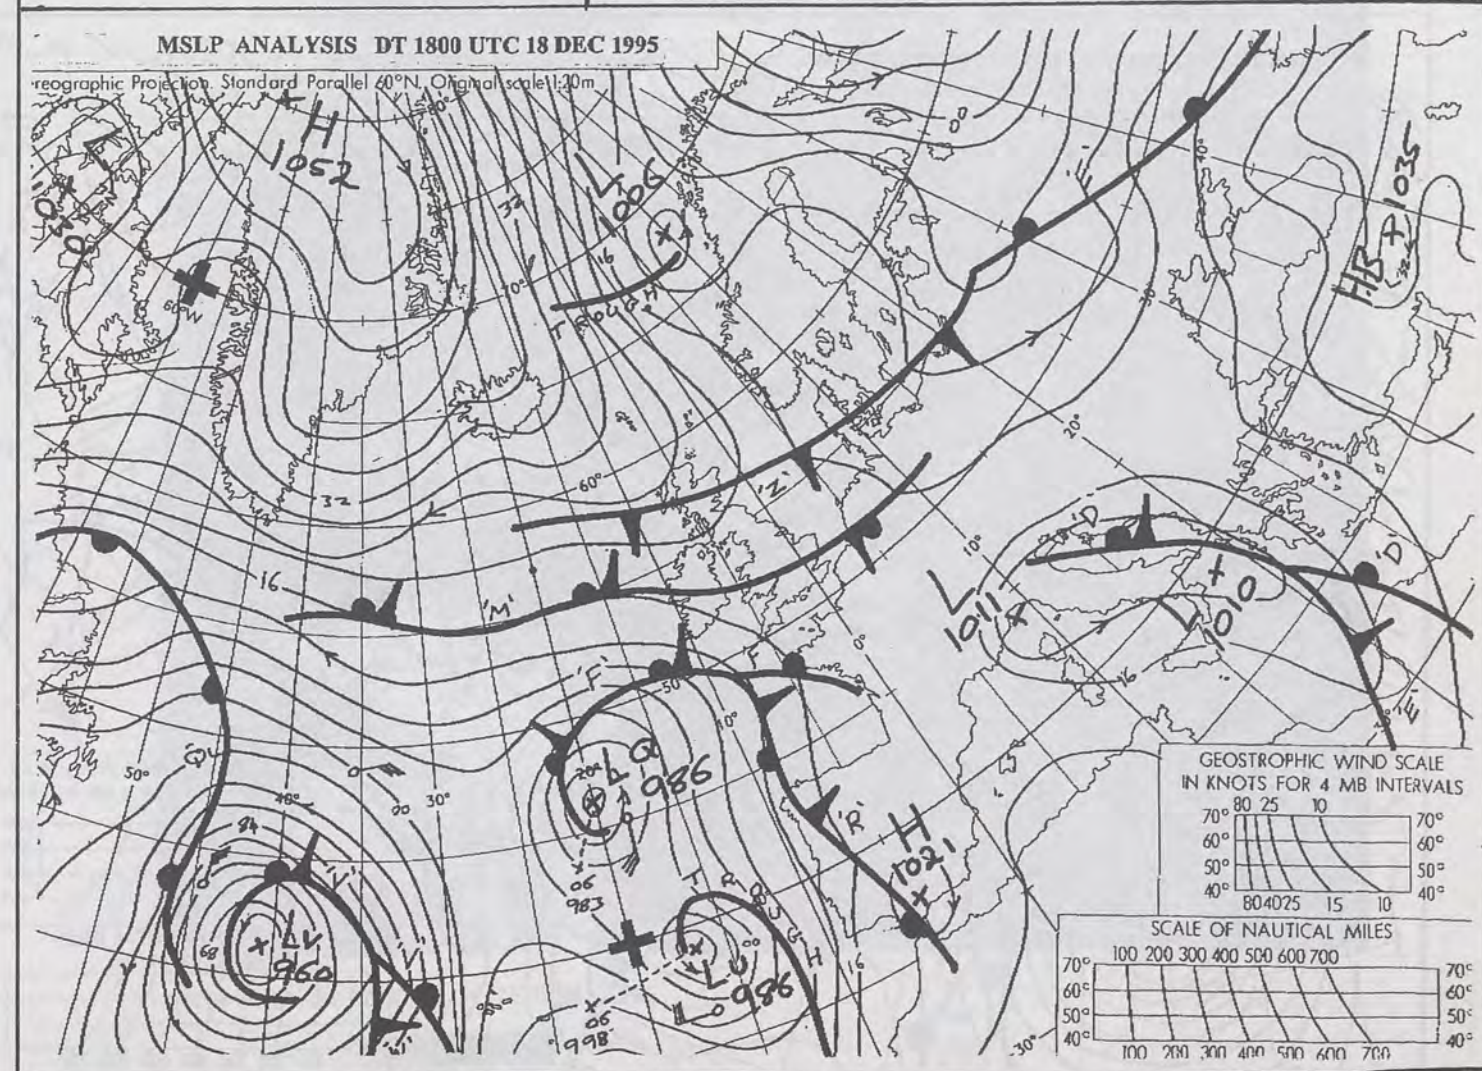 MSLP ANALYSIS DT 1800 UTC 18 DEC 1995
reographic Projection. Standard Parallel 60°N. Original scale 1:20m
H
1052
L
1006
32
16
TROUGH
70°
80°
60°W
40°
'E'
HB
1035
32
30°
20°
10°
0°
60°
'Z'
32
16
'M'
'D'
'D'
L
1011
1010
16
'E'
'F'
50°
10°
'Q'
50°
40°
30°
0
84
20°
L Q
986
06
983
'R'
H
1021
'V'
'V'
L V
960
68
TROUGH
L U
986
06
998
16
30°
GEOSTROPHIC WIND SCALE
IN KNOTS FOR 4 MB INTERVALS
80 25 10
70° 70°
60° 60°
50° 50°
40° 40°
80 40 25 15 10
SCALE OF NAUTICAL MILES
100 200 300 400 500 600 700
70° 70°
60° 60°
50° 50°
40° 40°
100 200 300 400 500 600 700